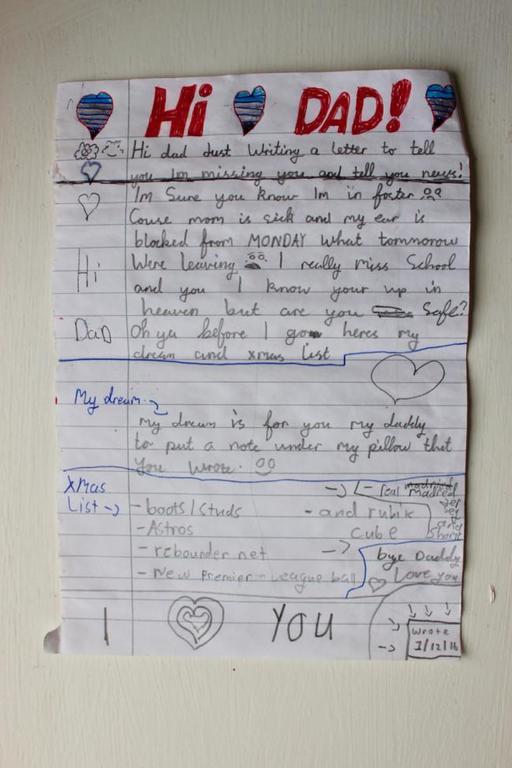 Hi DAD!
Hi dad Just Writing a letter to tell
you Im missing you and tell you news!
Im Sure you know Im in foster
Couse mom is sick and my ear is
blocked from MONDAY What tommorow
Hi
Were leaving I really miss School
and you I know your up in
heaven but are you Safe?
DaD
Oh ya before I go heres my
dream and xmas list
My dream
My dream is for you my daddy
to put a note under my pillow that
you wrote.
Xmas
List
- boots/studs
- Astros
- rebounder net
- New Premier-league ball
- real madred
jersey
and
Shorts
- and rubik
cube
bye Daddy
Love you
I YOU
Wrote
1/12/16